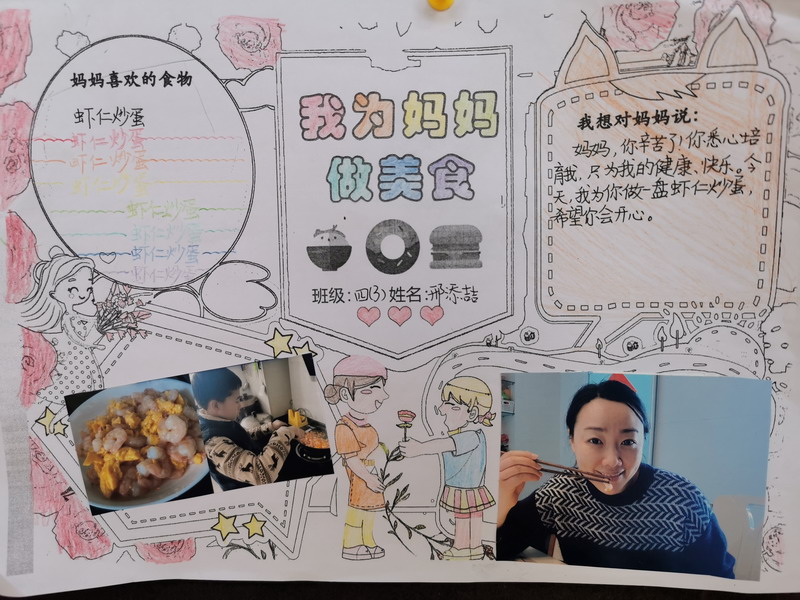 妈妈喜欢的食物
虾仁炒蛋
虾仁炒蛋
虾仁炒蛋
虾仁炒蛋
虾仁炒蛋
虾仁炒蛋
虾仁炒蛋
虾仁炒蛋
我为妈妈
做美食
班级:四(3)姓名:邢添喆
我想对妈妈说:
妈妈,你辛苦了!你悉心培
育我,只为我的健康、快乐。今
天,我为你做一盘虾仁炒蛋,
希望你会开心。